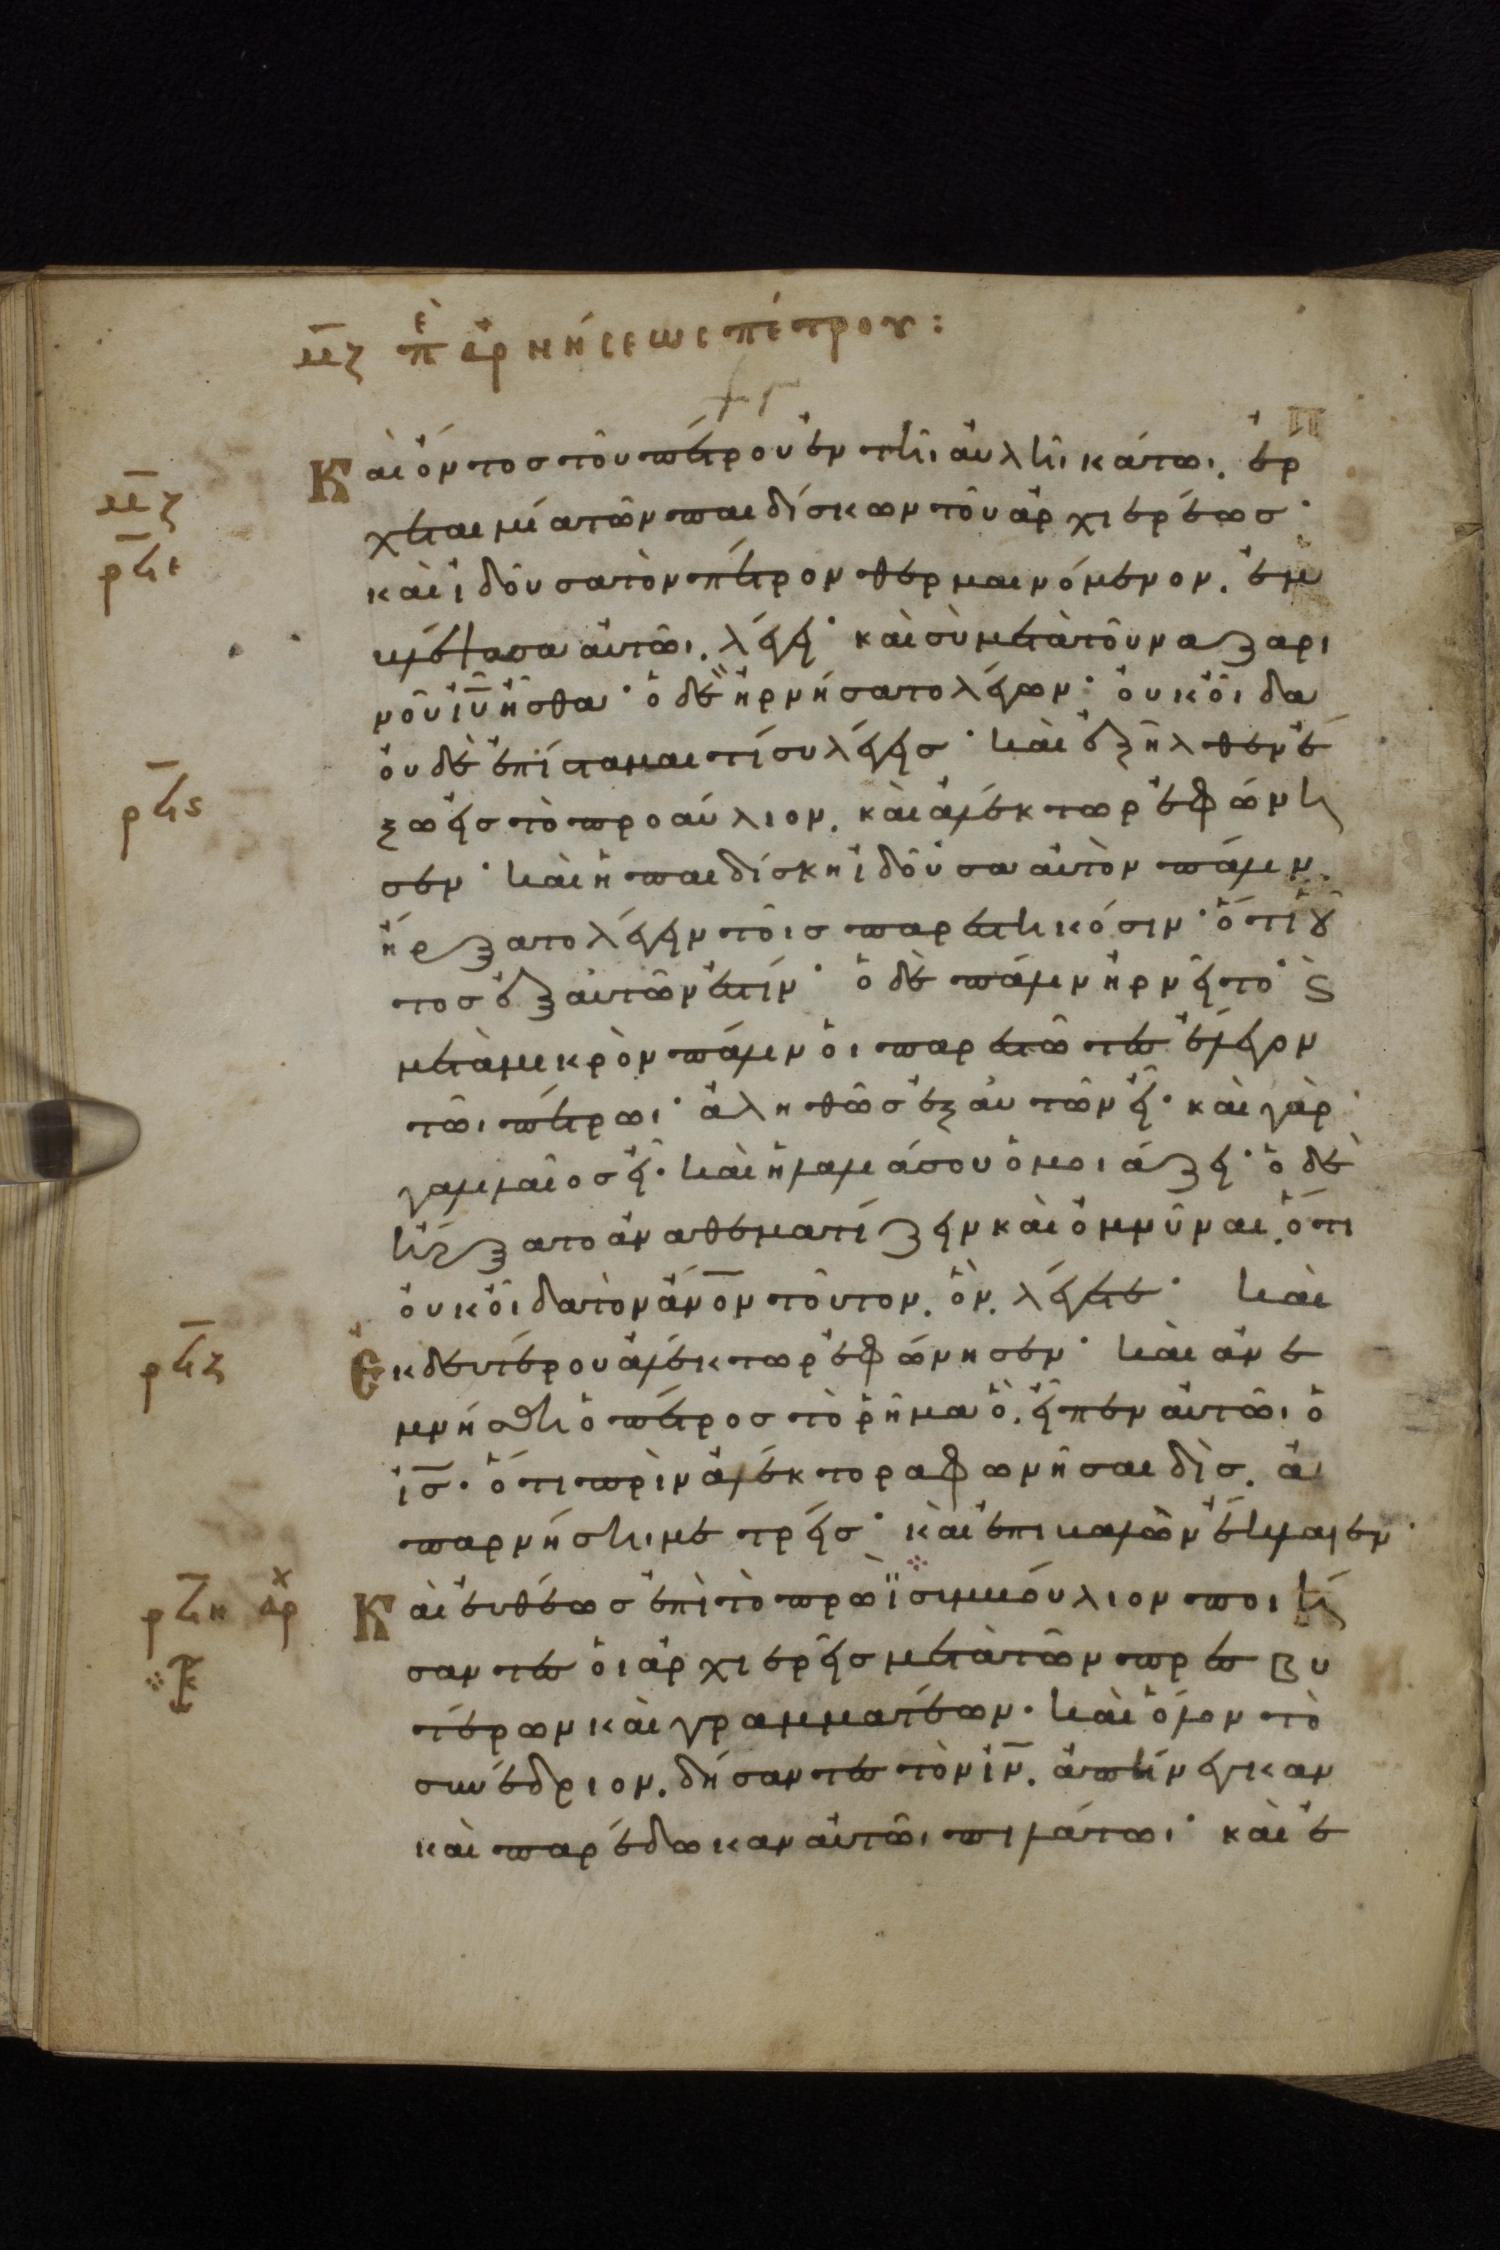 μζ πε αρνήσεως πέτρου:
Καὶ ὄντος τοῦ πέτρου ἐν τῆι ἀυλῆι κάτωι. ἔρ
μζ
χεται μία τῶν παιδίσκων τοῦ ἀρχιερέωσ·
ρϟε
καὶ ἰδοῦσα τὸν πέτρον θερμαινόμενον. ἐμ
βλέψασα αὐτῶι. λέγει· καὶ σὺ μετὰ τοῦ ναζαρι
νοῦ ἰῦ ἦσθα· ὁ δὲ ἠρνήσατο λέγων· οὐκ οἶδα
οὐδὲ ἐπίσταμαι τί συ λέγεισ· καὶ ἐξῆλθεν ἔ
ρϟς
ξω εἰσ τὸ προαύλιον. καὶ ἀλέκτωρ ἐφώνη
σεν· καὶ ἡ παιδίσκη ἰδοῦσα αὐτὸν πάλιν.
ἤρξατο λέγειν τοῖσ παρεστηκόσιν· ὅτι οὗ
τοσ ἐξ αὐτῶν ἐστίν· ὁ δὲ πάλιν ἠρνεῖτο· καὶ
μετὰ μικρὸν πάλιν οἱ παρεστῶτεσ ἔλεγον
τῶι πέτρωι· ἀληθῶσ ἐξ αὐτῶν εἶ· καὶ γὰρ
γαλιλαῖοσ εἶ· καὶ ἡ λαλιά σου ὁμοιάζει· ὁ δὲ
ἤρξατο ἀναθεματίζειν καὶ ὀμνῦναι. ὅτι
οὐκ οἶδα τὸν ἄνον τοῦτον. ὃν. λέγετε· καὶ
ρϟζ
Ἐκ δευτέρου ἀλέκτωρ ἐφώνησεν· καὶ ἀνε
μνήσθη ὁ πέτροσ τὸ ῥῆμα ὃ. εἶπεν αὐτῶι ὁ
ἰσ· ὅτι πρὶν ἀλέκτορα φωνῆσαι δὶσ. ἀ
παρνήσηι με τρείσ· καὶ ἐπιβαλὼν ἔκλαιεν·
ρϟη αρχ
Καὶ εὐθέωσ ἐπὶ τὸ πρωῒ συμβούλιον ποιή
σαντεσ οἱ ἀρχιερεῖσ μετὰ τῶν πρεσβυ
τέρων καὶ γραμματέων· καὶ ὅλον τὸ
συνέδριον. δήσαντεσ τὸν ἰν. ἀπήνεγκαν
καὶ παρέδωκαν αὐτῶι πιλάτωι· καὶ ἐ